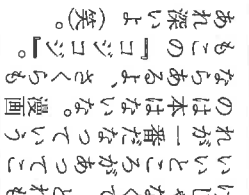 いいところがあってこ
れが一番だなっていう
のは本はない。漫画
ならあるよ、さくらも
もこの『コジコジ』。
あれ深いよ（笑）。